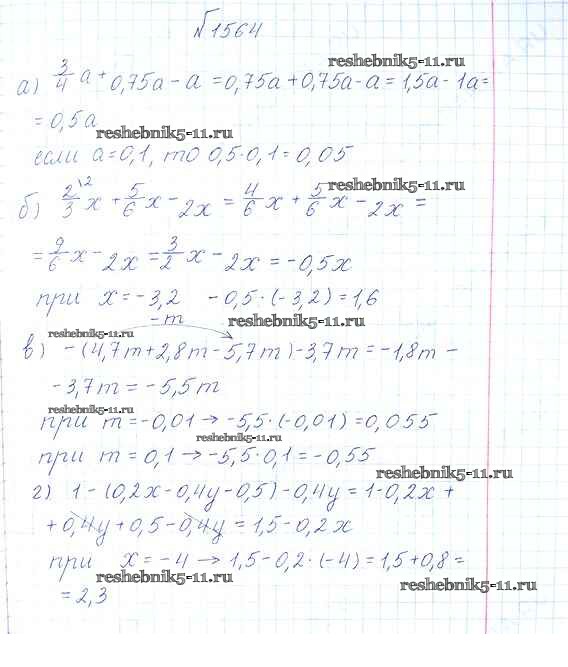 №1564
reshebnik5-11.ru
а) 3/4 a + 0,75a - a = 0,75a + 0,75a - a = 1,5a - 1a =
= 0,5a
reshebnik5-11.ru
если a = 0,1, то 0,5·0,1 = 0,05
reshebnik5-11.ru
б) 2/3 \2 x + 5/6 x - 2x = 4/6 x + 5/6 x - 2x =
= 9/6 x - 2x = 3/2 x - 2x = -0,5x
при x = -3,2 -0,5·(-3,2) = 1,6
-m
reshebnik5-11.ru
reshebnik5-11.ru
в) -(4,7m + 2,8m - 5,7m) - 3,7m = -1,8m -
-3,7m = -5,5m
reshebnik5-11.ru
при m = -0,01 → -5,5·(-0,01) = 0,055
reshebnik5-11.ru
при m = 0,1 → -5,5·0,1 = -0,55
reshebnik5-11.ru
г) 1 - (0,2x - 0,4y - 0,5) - 0,4y = 1 - 0,2x +
+ 0,4y + 0,5 - 0,4y = 1,5 - 0,2x
при x = -4 → 1,5 - 0,2·(-4) = 1,5 + 0,8 =
reshebnik5-11.ru
reshebnik5-11.ru
= 2,3